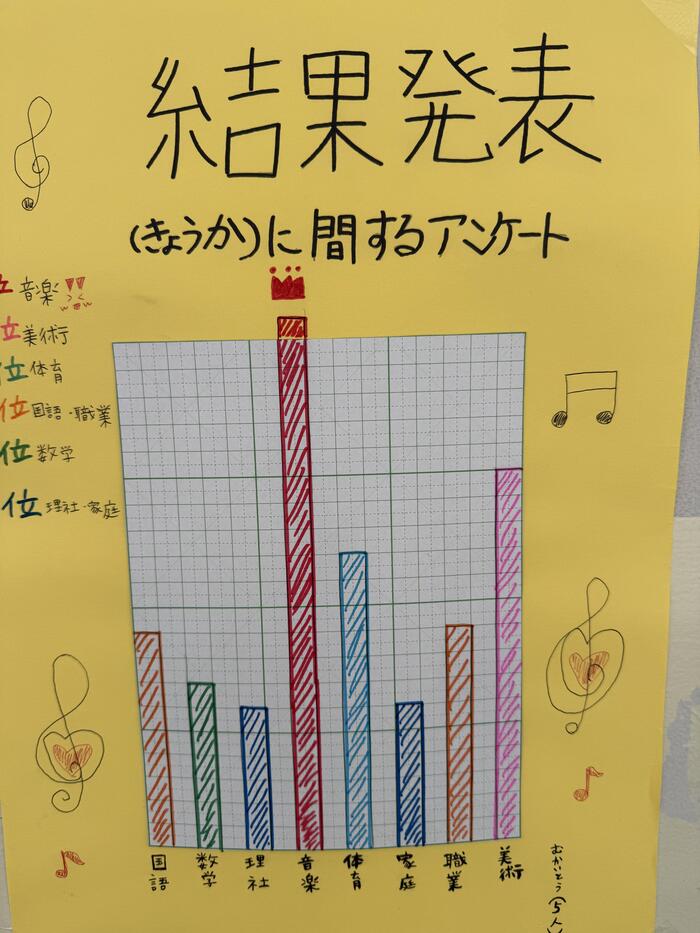 結果発表
(きょうか)に間するアンケート
位 音楽
位 美術
位 体育
位 国語・職業
位 数学
位 理社・家庭
国語
数学
理社
音楽
体育
家庭
職業
美術
むかいとう(5人)